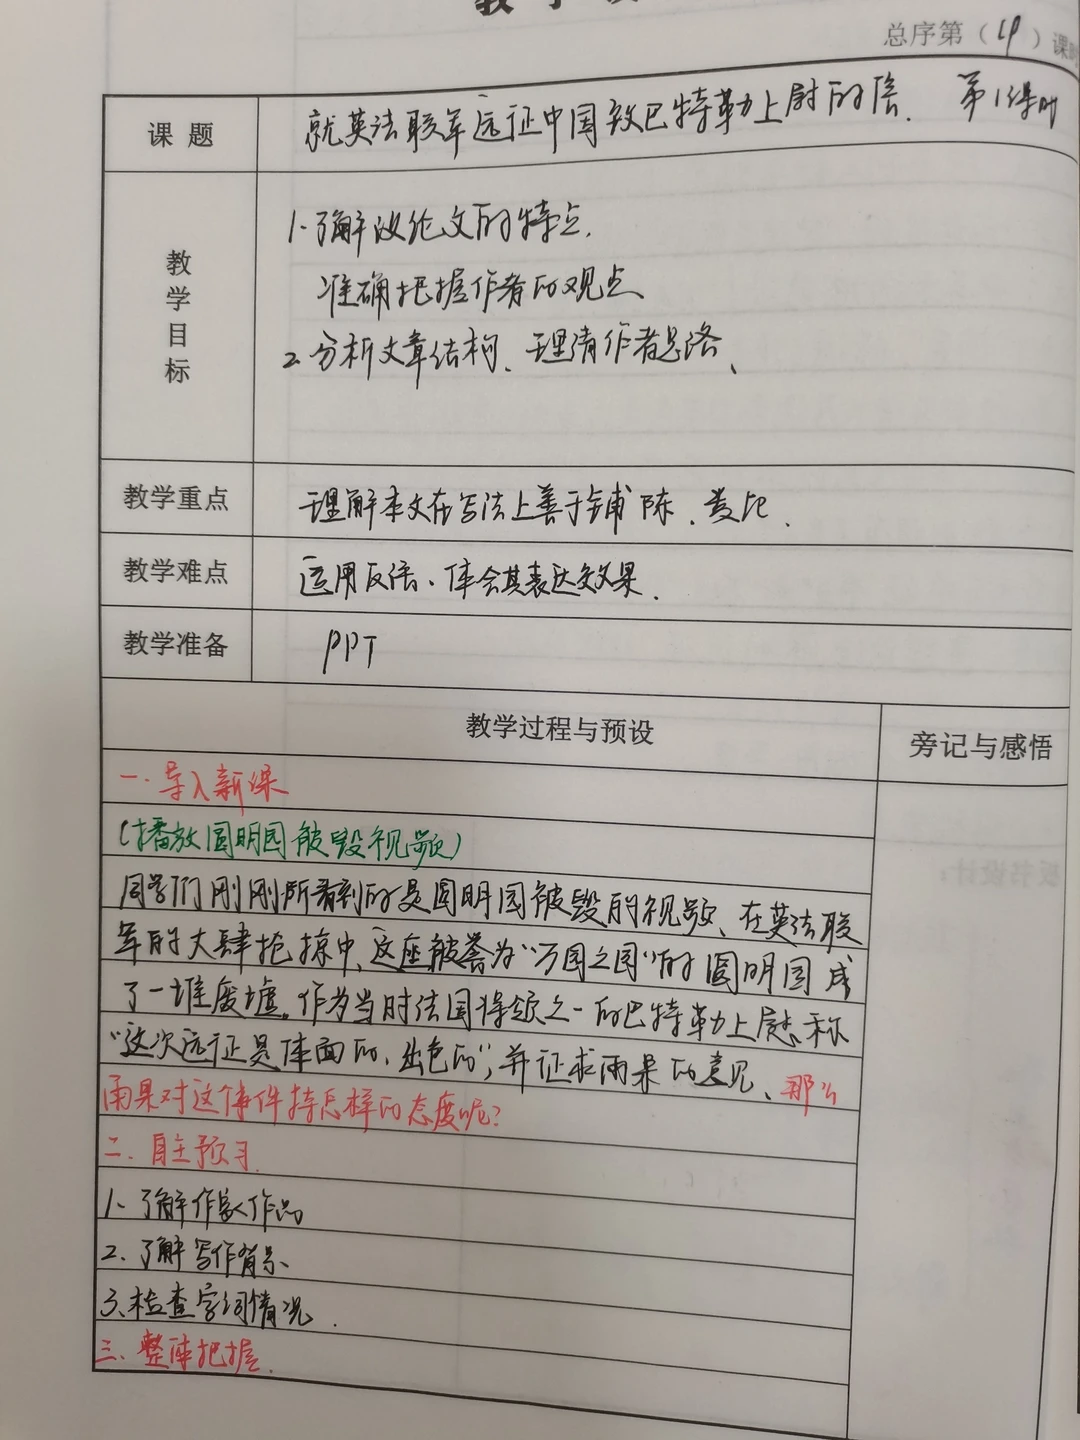 总序第（19）课时
课题
就英法联军远征中国致巴特勒上尉的信. 第1课时
教学目标
1.了解政论文的特点.
准确把握作者的观点、
2.分析文章结构、理清作者思路、
教学重点
理解本文在写法上善于铺陈、类比、
教学难点
运用反语、体会其表达效果.
教学准备
PPT
教学过程与预设
旁记与感悟
一.导入新课
(播放圆明园被毁视频)
同学们刚刚所看到的是圆明园被毁的视频、在英法联
军的大肆抢掠中,这座被誉为“万园之园”的圆明园成
了一堆废墟。作为当时法国将领之一的巴特勒上尉,称
“这次远征是体面的、出色的”,并征求雨果的意见、那么
雨果对这个事件持怎样的态度呢?
二.自主预习.
1.了解作家作品
2.了解写作背景、
3.检查字词情况.
三.整体把握.
板书设计：